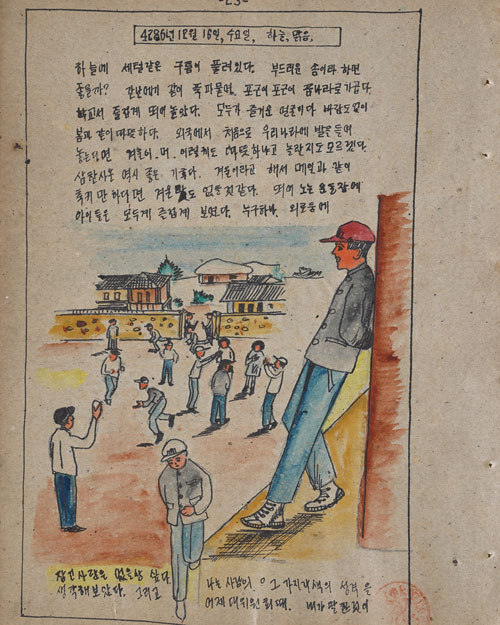 -23-
4286년 12월 16일, 수요일, 하늘, 맑음,
하늘에 세털같은 구름이 풀려있다. 부드러운 솜이라 하면
좋을까? 간밤에게 같이 푹파물여, 포근이 포근이 꿈나라로가곱다.
학교서 즐겁게 뛰어놀았다. 모두가 즐거운 얼굴이다 바람도없이
봄과 같이 따뜻하다. 외국에서 처음으로 우리나라에 발을들여
놓는다면 겨울이. 머. 이렇게도 따뜻하냐고 놀랄지도모르겠다.
삼한사온 역시 좋은 기후다. 겨울이라고 해서 매일과 같이
춥기만 하다면 겨운 맛도 없을것같다. 뛰어 노는 운동장에
아이들은 모두게 즐겁게 보였다. 누구하나, 외로움에
잠긴사람은 없을상 싶다.
생각해보았다. 그리고
나는 사람의 그 가지각색의 성격을
어제 대위원회때. 내가 말한것이